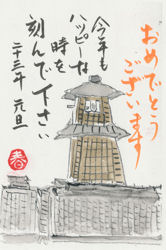 おめでとう
ございます
今年も
ハッピーな
時を
刻んで下さい
二十三年 元旦
春